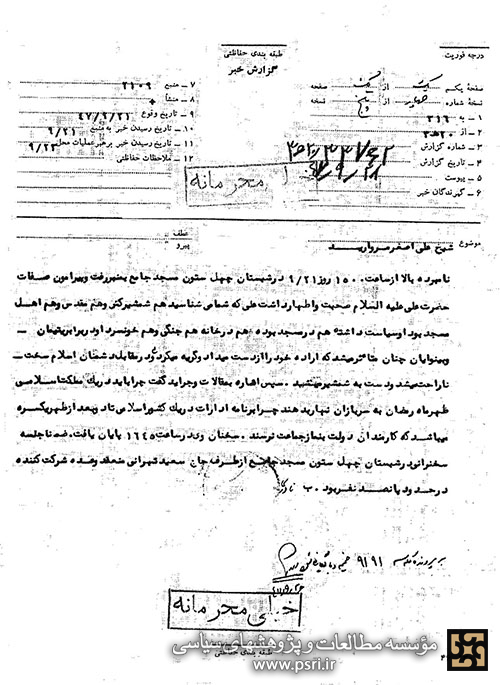 درجه فوریت
طبقه بندی حفاظتی
گزارش خبر
صفحهٔ یکم از یک صفحه
نسخهٔ شماره چهار از پنج نسخه
۱ – به ۳۱۶
۲ – از ۳۵۲۰
۳ – شماره گزارش
۴ – تاریخ گزارش
۵ – پیوست
۶ – گیرندگان خبر
۷ – منبع ۲۱۰۹
۸ – منشأ
۹ – تاریخ وقوع ۴۷/۹/۲۱
۱۰ – تاریخ رسیدن خبر به منبع ۹/۲۱
۱۱ – تاریخ رسیدن خبر برهبر عملیات محل ۹/۲۳
۱۲ – ملاحظات حفاظتی
محرمانه
موضوع شیخ علی اصغر مروارید
عطف
پیرو
نامبرده بالا از ساعت ۱۵۰۰ روز ۹/۲۱ در شبستان چهل ستون مسجد جامع بمنبر رفت و پیرامون صفات
حضرت علی علیه السلام صحبت و اظهار داشت علی که شما می شناسید هم شمشیرکش و هم مقدس و هم اهل
مسجد بود او سیاست داشته هم در مسجد بوده هم در خانه هم جنگی و هم خونسرد او در برابر یتیمان
و بینوایان چنان متاثر میشد که اراده خود را از دست میداد و گریه میکرد و در مقابل دشمنان اسلام سخت
ناراحت میشد و دست به شمشیر میشد. سپس اشاره بمقالات و جراید گفت چرا باید در یک مملکت اسلامی
ظهر ماه رمضان به سربازان نهار بدهند چرا برنامه ادارات در یک کشور اسلامی تا دو بعد از ظهر یکسره
میباشد که کارمندان دولت بنماز جماعت نرسند. سخنان وی در ساعت ۱۶۴۵ پایان یافت. ضمنا جلسه
سخنرانی در شبستان چهل ستون مسجد جامع از طرف حاج سعید تهرانی منعقد و عده شرکت کننده
در حدود پانصد نفر بود. ب
۹۱۹۱
خیلی محرمانه
طبقه بندی حفاظتی
مؤسسه مطالعات و پژوهشهای سیاسی
www.psri.ir